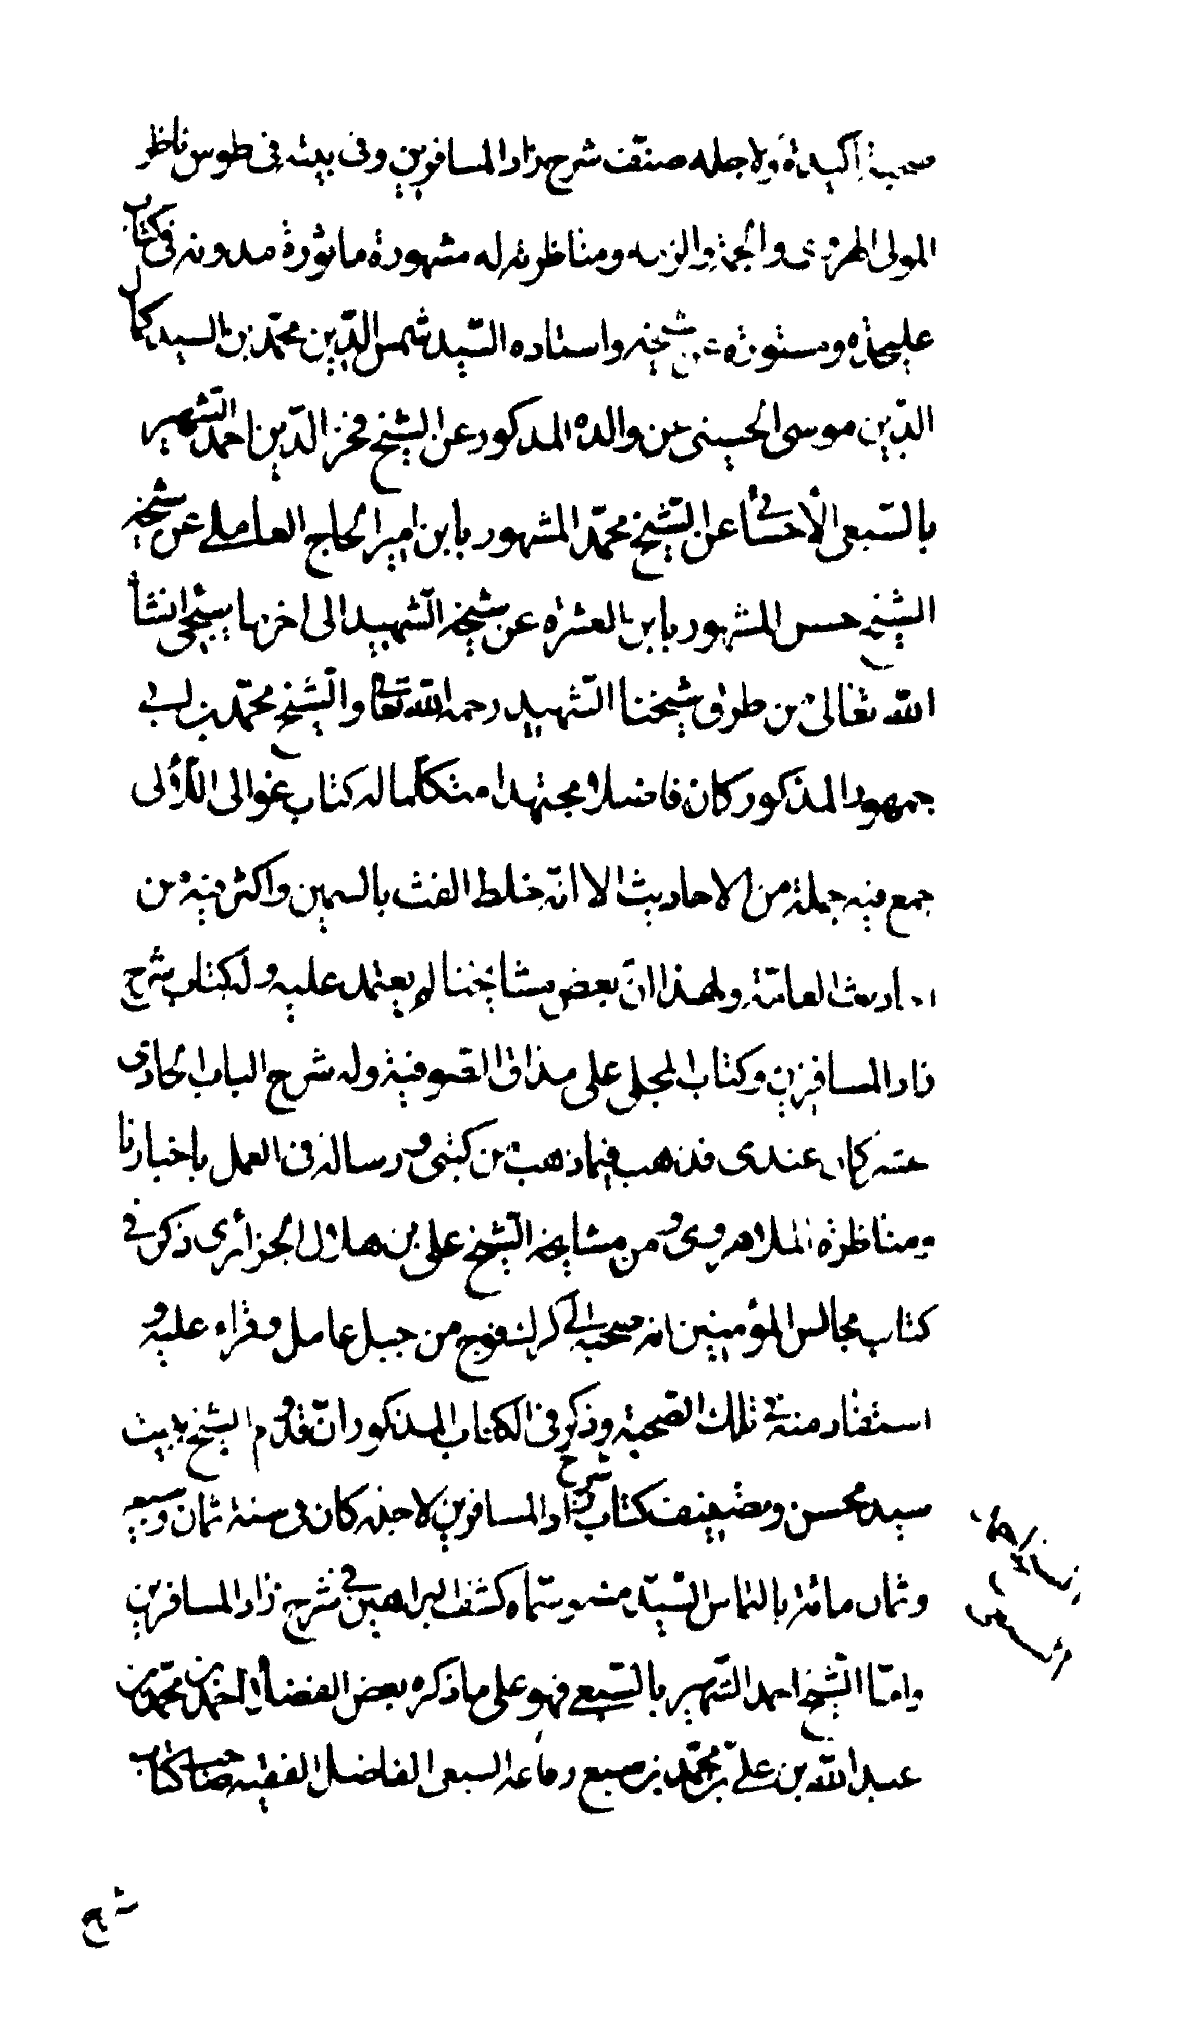 صحبة اكيدة ولاجله صنف شرح زاد المسافرين وفى بيته فى طوس ناظر
المولى الهروى والجمة والزمه ومناظرته له مشهورة ماثورة مدونه فى كتاب
عليحده ومستوره عن شيخه واستاده السّيد شمس الدّين محمّد بن السيد كمال
الدّين موسى الحسينى عن والده المذكور عن الشيخ فخر الدّين احمد الشهير
بالسّبعى الأحسائى عن الشّيخ محمّد المشهور بابن امير الحاج العاملى عن شيخه
الشيخ حسن المشهور بابن العشره عن شيخه الشّهيد الى اخرها سيجئ انشأ
اللّه تعالى من طرق شيخنا الشّهيد رحمه اللّه تعالى والشّيخ محمّد بن ابى
جمهور المذكور كان فاضلا مجتهدا متكلّما له كتاب غوالى اللآلى
جمع فيه جملة من الاحاديث الا انّه خلط الغث بالسمين واكثر فيه من
احاديث العامّة ولهذا انّ بعض مشايخنا لم يعتمد عليه وله كتاب شرح
زاد المسافرين وكتاب المجلى على مذاق الصّوفية وله شرح الباب الحادى
عشر كان عندى فذهب فيما ذهب من كتبى ورسالة فى العمل باخبارنا
ومناظرة الملا هروى ومن مشايخه الشّيخ على بن هلال الجزائرى ذكر فى
كتاب مجالس المؤمنين انه صحبه الى كرك نوح من جبل عامل وقراء عليه و
استفاد منه فى تلك الصّحبة وذكر فى الكتاب المذكور انّ قدوم الشيخ بيت
سيد محسن وتصنيف كتاب شرح زاد المسافرين لاجله كان فى سنة ثمان وسبعين
وثمان مائة بالتماس السّيد منه وسمّاه كشف البراهين فى شرح زاد المسافرين
وامّا الشّيخ احمد الشّهير بالسّبعى فهو على ما ذكره بعض الفضلاء احمد بن محمّد بن
عبد اللّه بن على بن محمّد بن سبع رفاعه السبعى الفاضل الفقيه صاحب كتاب
السبعى
شرح